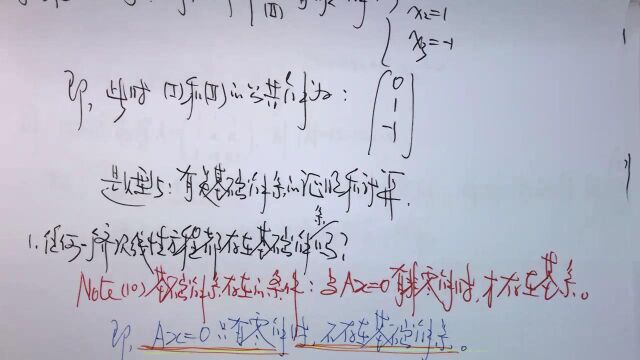 (II)
x₂=1
x₃=-1
即，此时(I)和(II)的公共解为：(0 1 -1)
题型5：有关基础解系的证明和计算.
1.任何一齐次线性方程都存在基础解系吗？
Note(10)基础解系存在的条件：当Ax=0有非零解时，才存在基系。
即，Ax=0只有零解时，不存在基础解系。